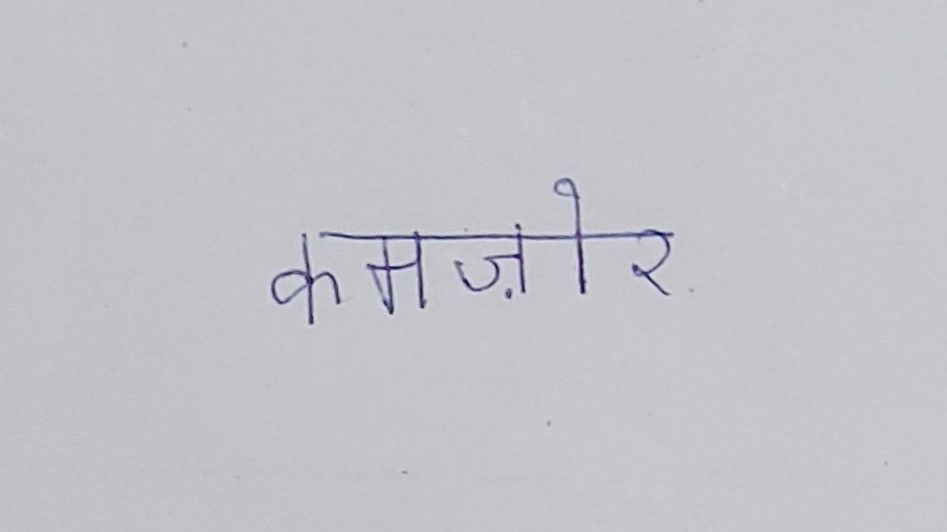 कमज़ोर